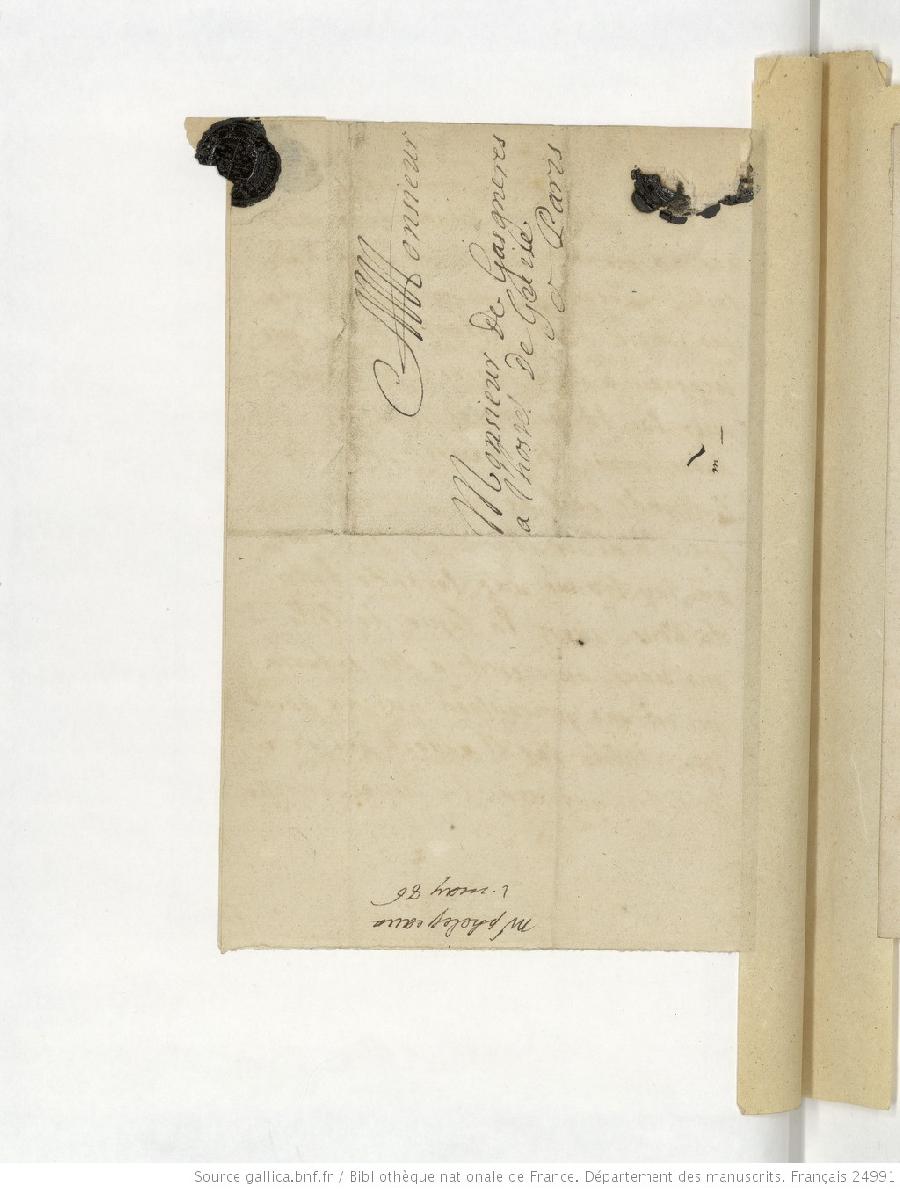 Monsieur
Monsieur de Gaigneres
a lhostel de Guise
a Paris
may 86
mr phelypeaux
Source gallica.bnf.fr / Bibliothèque nationale de France. Département des manuscrits. Français 2499